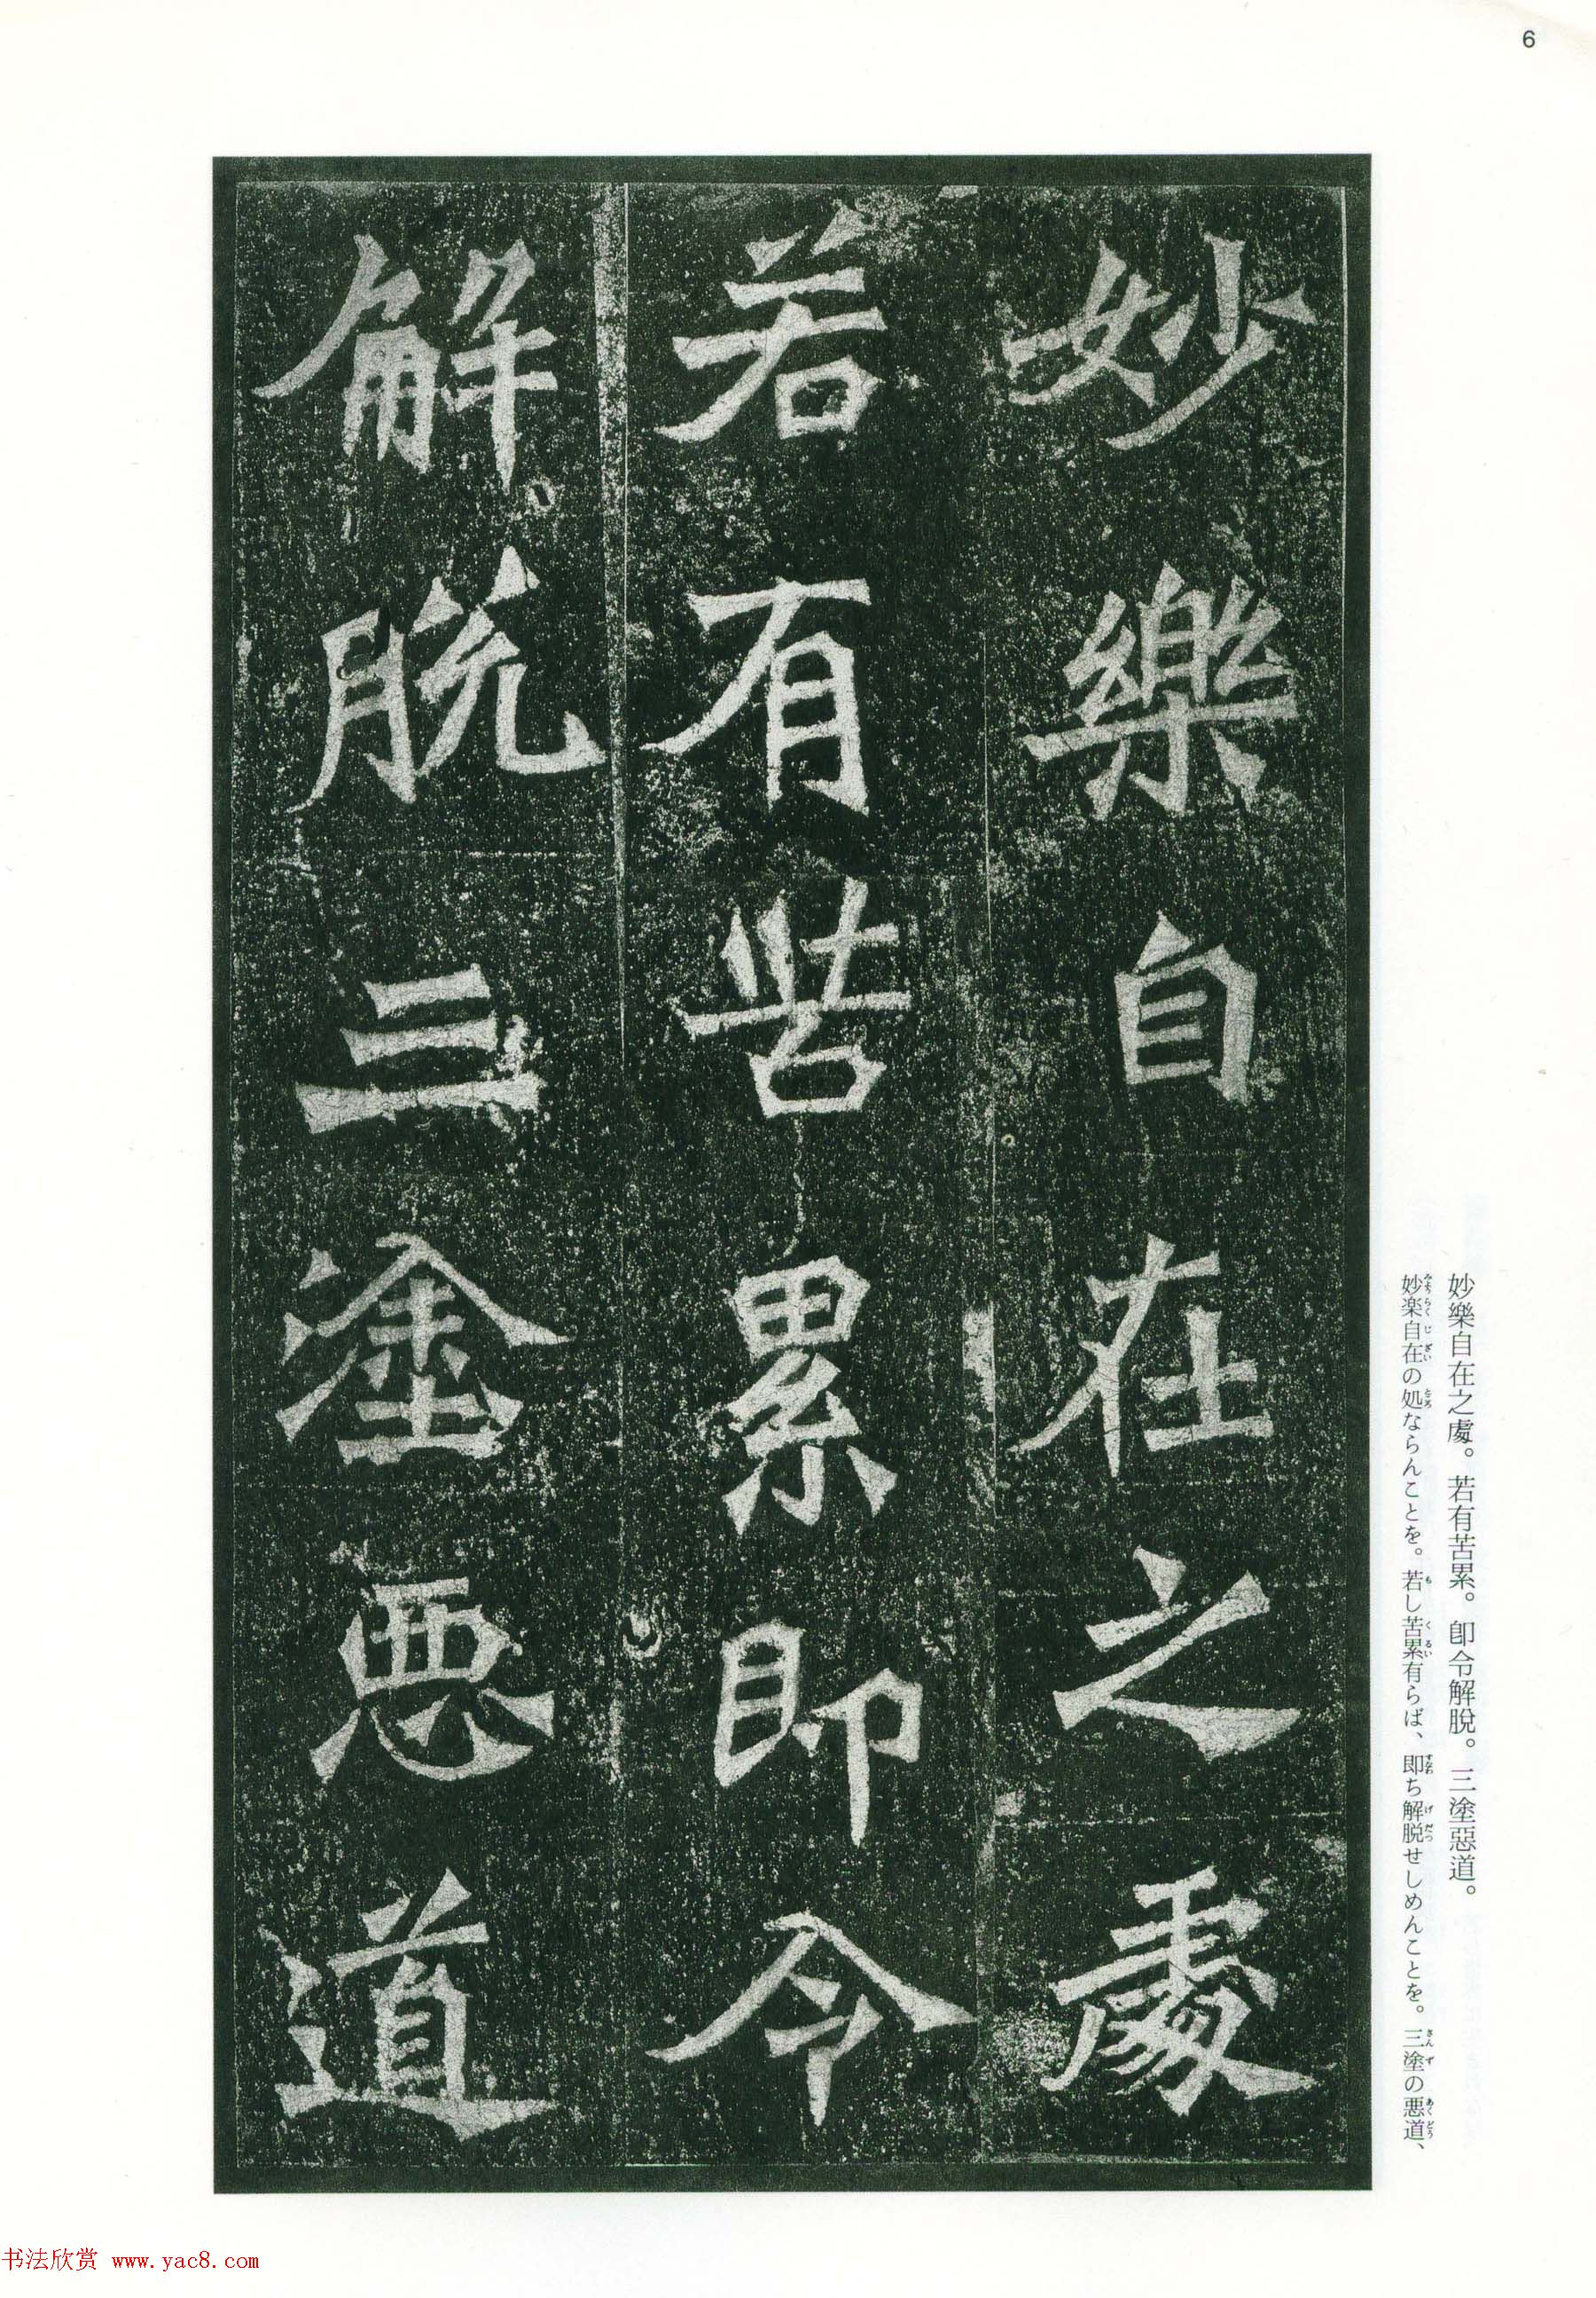 6
妙樂自在之處
若有苦累即令
解脫三塗惡道
妙樂自在之處。若有苦累。卽令解脫。三塗惡道。
妙楽自在の処ならんことを。若し苦累有らば、即ち解脱せしめんことを。三塗の悪道、
书法欣赏 www.yac8.com